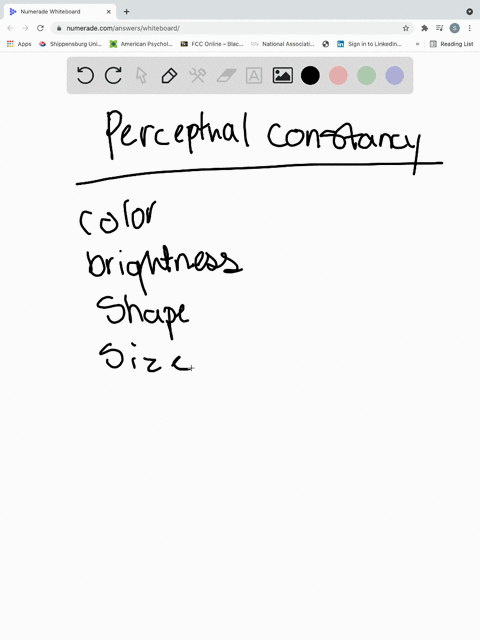 Numerade Whiteboard
numerade.com/answers/whiteboard/
Apps Shippensburg Uni... American Psychol... FCC Online – Blac... National Associati... Sign in to LinkedIn... » Reading List
S
A
Perceptual Constancy
color
brightness
Shape
Size